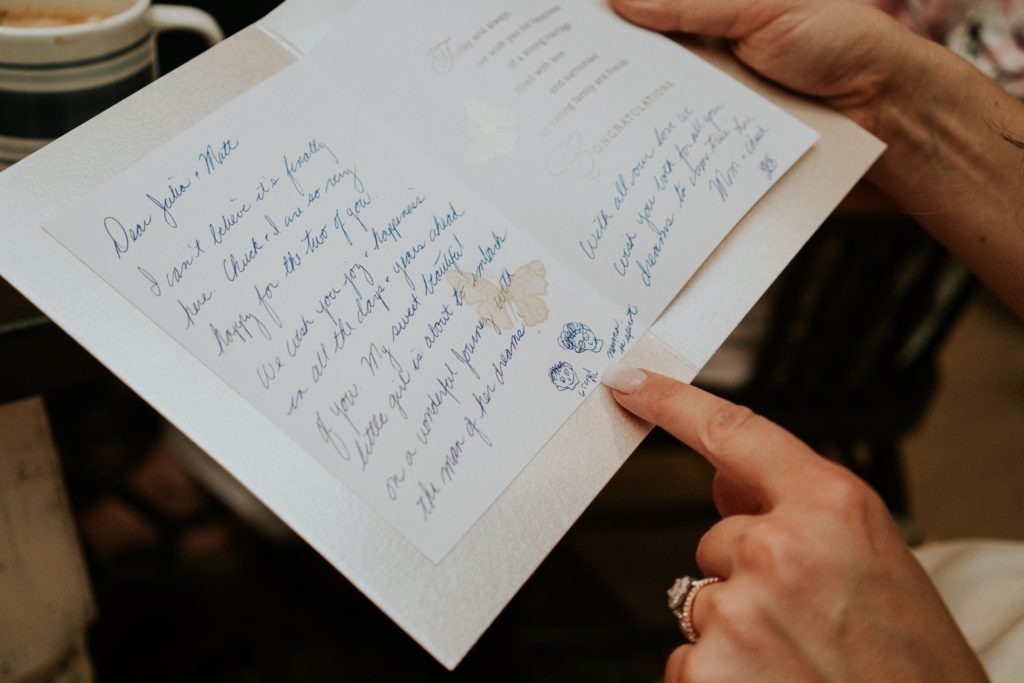 Dear Julia + Matt
I can't believe it's finally
here. Chuck + I are so very
happy for the two of you.
We wish you joy + happiness
in all the days + years ahead
of you. My sweet beautiful
little girl is about to embark
on a wonderful journey with
the man of her dreams
Today and always,
we wish you the happiness
of a strong marriage
filled with love
and surrounded
by caring family and friends.
CONGRATULATIONS
With all our love we
wish you both for all you
dreams to come true
Mom + Chuck